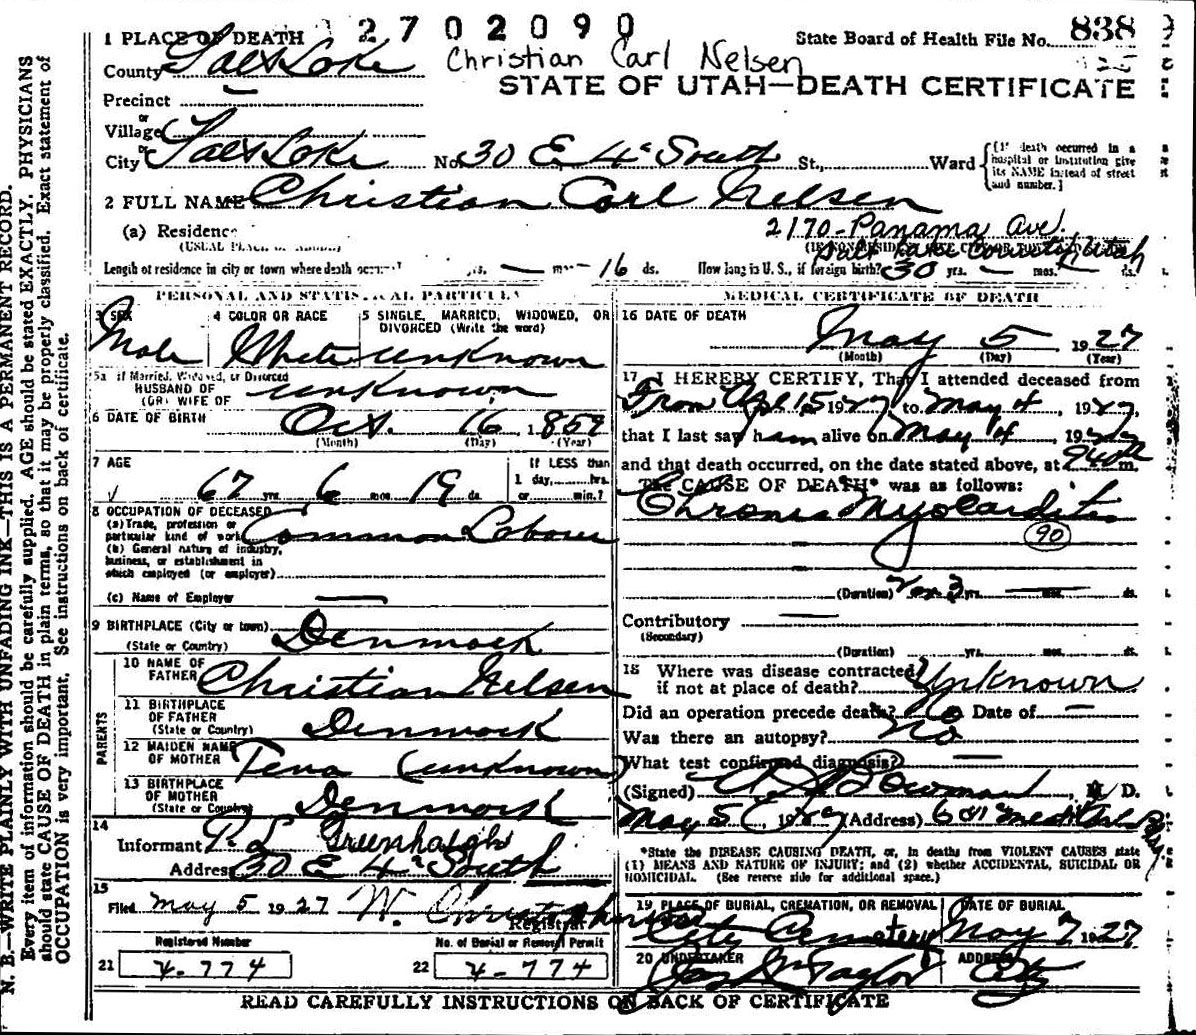 2702090
1 PLACE OF DEATH
State Board of Health File No. 838
County Salt Lake
Christian Carl Nelsen
STATE OF UTAH—DEATH CERTIFICATE
Precinct
or
Village
or
City Salt Lake No. 30 E 4" South St., Ward {(If death occurred in a hospital or institution give its NAME instead of street and number.]
2 FULL NAME Christian Carl Nelsen
(a) Residence 2170 - Panama Ave.
(USUAL PLACE OF ABODE) (IF NON-RESIDENT GIVE CITY OR TOWN AND STATE)
Salt Lake County, Utah
Length of residence in city or town where death occurred yrs. — mos. 16 ds. How long in U.S., if foreign birth? 30 yrs. — mos. ds.
PERSONAL AND STATISTICAL PARTICULARS
3 SEX 4 COLOR OR RACE 5 SINGLE, MARRIED, WIDOWED, OR DIVORCED (Write the word)
Male White unknown
5a if Married, Widowed, or Divorced
HUSBAND OF
(OR) WIFE OF unknown
6 DATE OF BIRTH Oct. 16 1859
(Month) (Day) (Year)
7 AGE 67 yrs. 6 mos. 19 ds.
If LESS than
1 day,......hrs.
or......min.?
8 OCCUPATION OF DECEASED
(a) Trade, profession or
particular kind of work Common Laborer
(b) General nature of industry,
business, or establishment in
which employed (or employer)
(c) Name of Employer —
9 BIRTHPLACE (City or town)
(State or Country) Denmark
PARENTS
10 NAME OF
FATHER Christian Nelsen
11 BIRTHPLACE
OF FATHER
(State or Country) Denmark
12 MAIDEN NAME
OF MOTHER Tena (unknown)
13 BIRTHPLACE
OF MOTHER
(State or Country) Denmark
14
Informant P. L. Greenhalgh
Address 30 E 4" South
15
Filed May 5 1927 W. Christopherson
Registrar
Registered Number No. of Burial or Removal Permit
21 4-774 22 4-774
MEDICAL CERTIFICATE OF DEATH
16 DATE OF DEATH
May 5 1927
(Month) (Day) (Year)
17 I HEREBY CERTIFY, That I attended deceased from
From Apl 15 1927, to May 4, 1927,
that I last saw him alive on May 4 1927
and that death occurred, on the date stated above, at m.
The CAUSE OF DEATH* was as follows:
Chronic Myocarditis
90
(Duration) 3 yrs. — ds.
Contributory —
(Secondary)
(Duration) yrs. mos. ds.
18 Where was disease contracted
if not at place of death? Unknown
Did an operation precede death? No Date of —
Was there an autopsy? No
What test confirmed diagnosis? —
(Signed) M. D.
May 5, 1927 (Address)
*State the DISEASE CAUSING DEATH, or, in deaths from VIOLENT CAUSES state
(1) MEANS AND NATURE OF INJURY; and (2) whether ACCIDENTAL, SUICIDAL OR
HOMICIDAL. (See reverse side for additional space.)
19 PLACE OF BURIAL, CREMATION, OR REMOVAL DATE OF BURIAL
City Cemetery May 7 1927
20 UNDERTAKER ADDRESS
Taylor City
READ CAREFULLY INSTRUCTIONS ON BACK OF CERTIFICATE
N. B.—WRITE PLAINLY WITH UNFADING INK—THIS IS A PERMANENT RECORD.
Every item of information should be carefully supplied. AGE should be stated EXACTLY. PHYSICIANS
should state CAUSE OF DEATH in plain terms, so that it may be properly classified. Exact statement of
OCCUPATION is very important. See instructions on back of certificate.